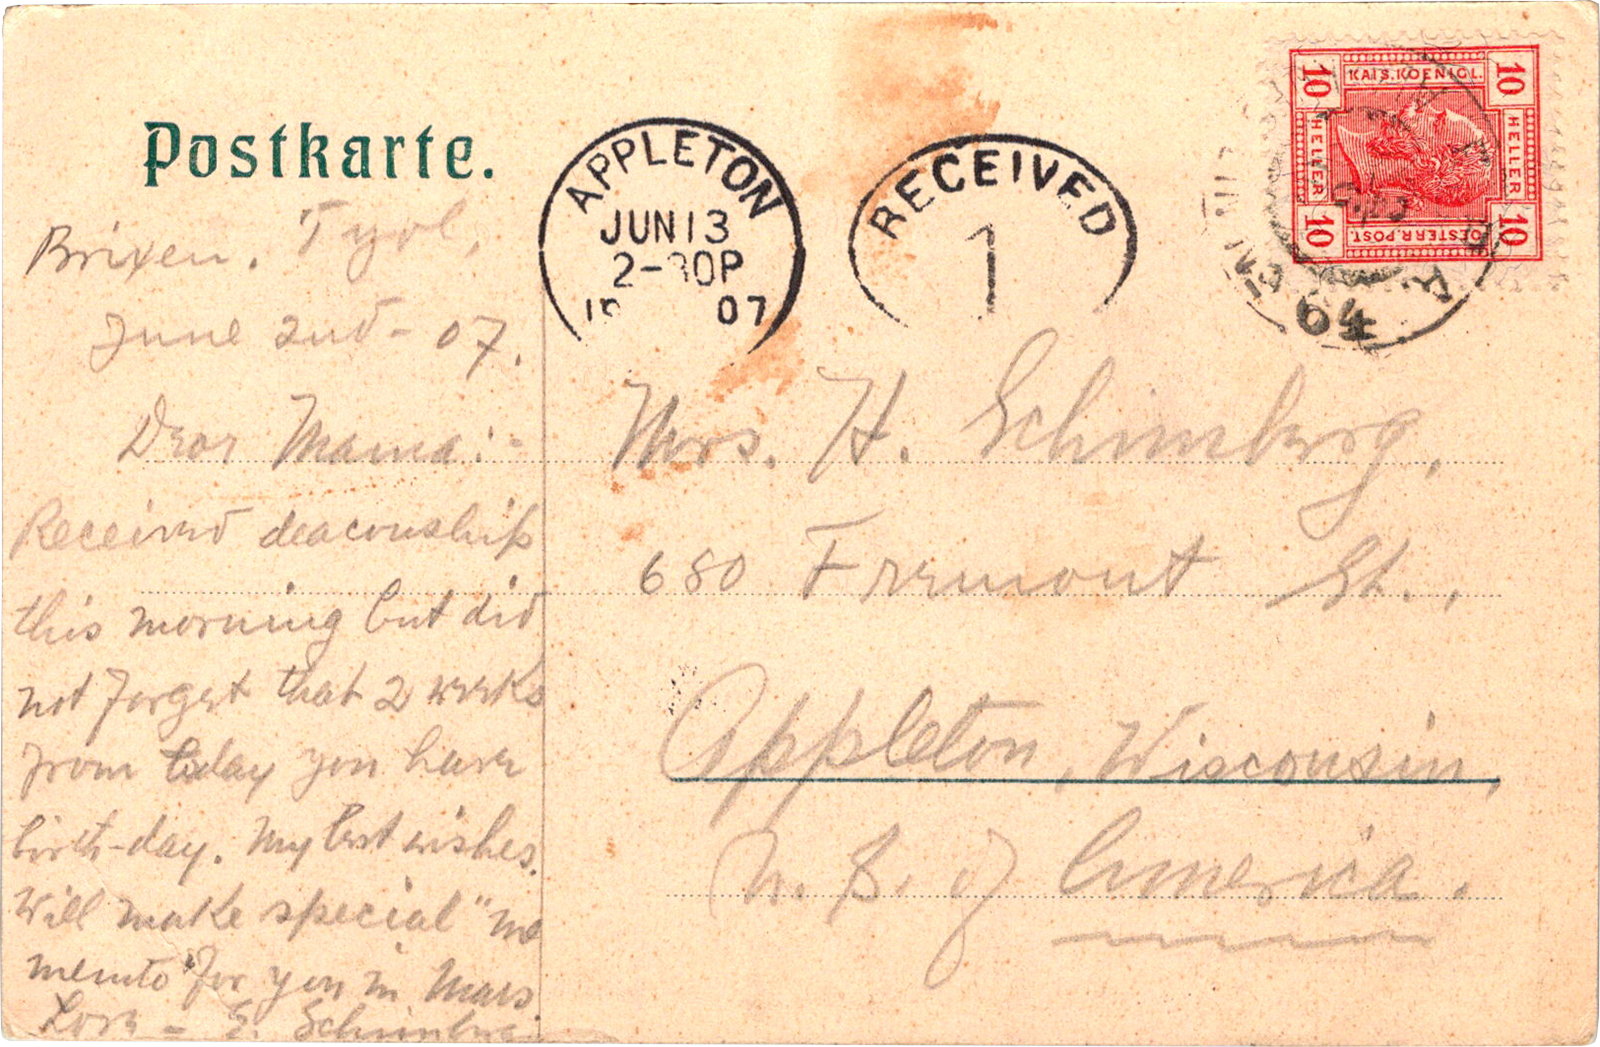 Postkarte.
Brixen. Tyol,
June 2nd - 07.
Dear Mama:-
Received deaconship
this morning but did
not forget that 2 weeks
from today you have
birth-day. My best wishes.
Will make special "me
mento" for you in Mass
Love - E. Schimberg
APPLETON
JUN 13
2-30P
07
RECEIVED
1
KAIS. KOENIGL.
10
10
HELLER
HELLER
10
10
OESTERR. POST.
64
Mrs. H. Schimberg,
680 Fremont St.,
Appleton, Wisconsin,
U. S. of America.